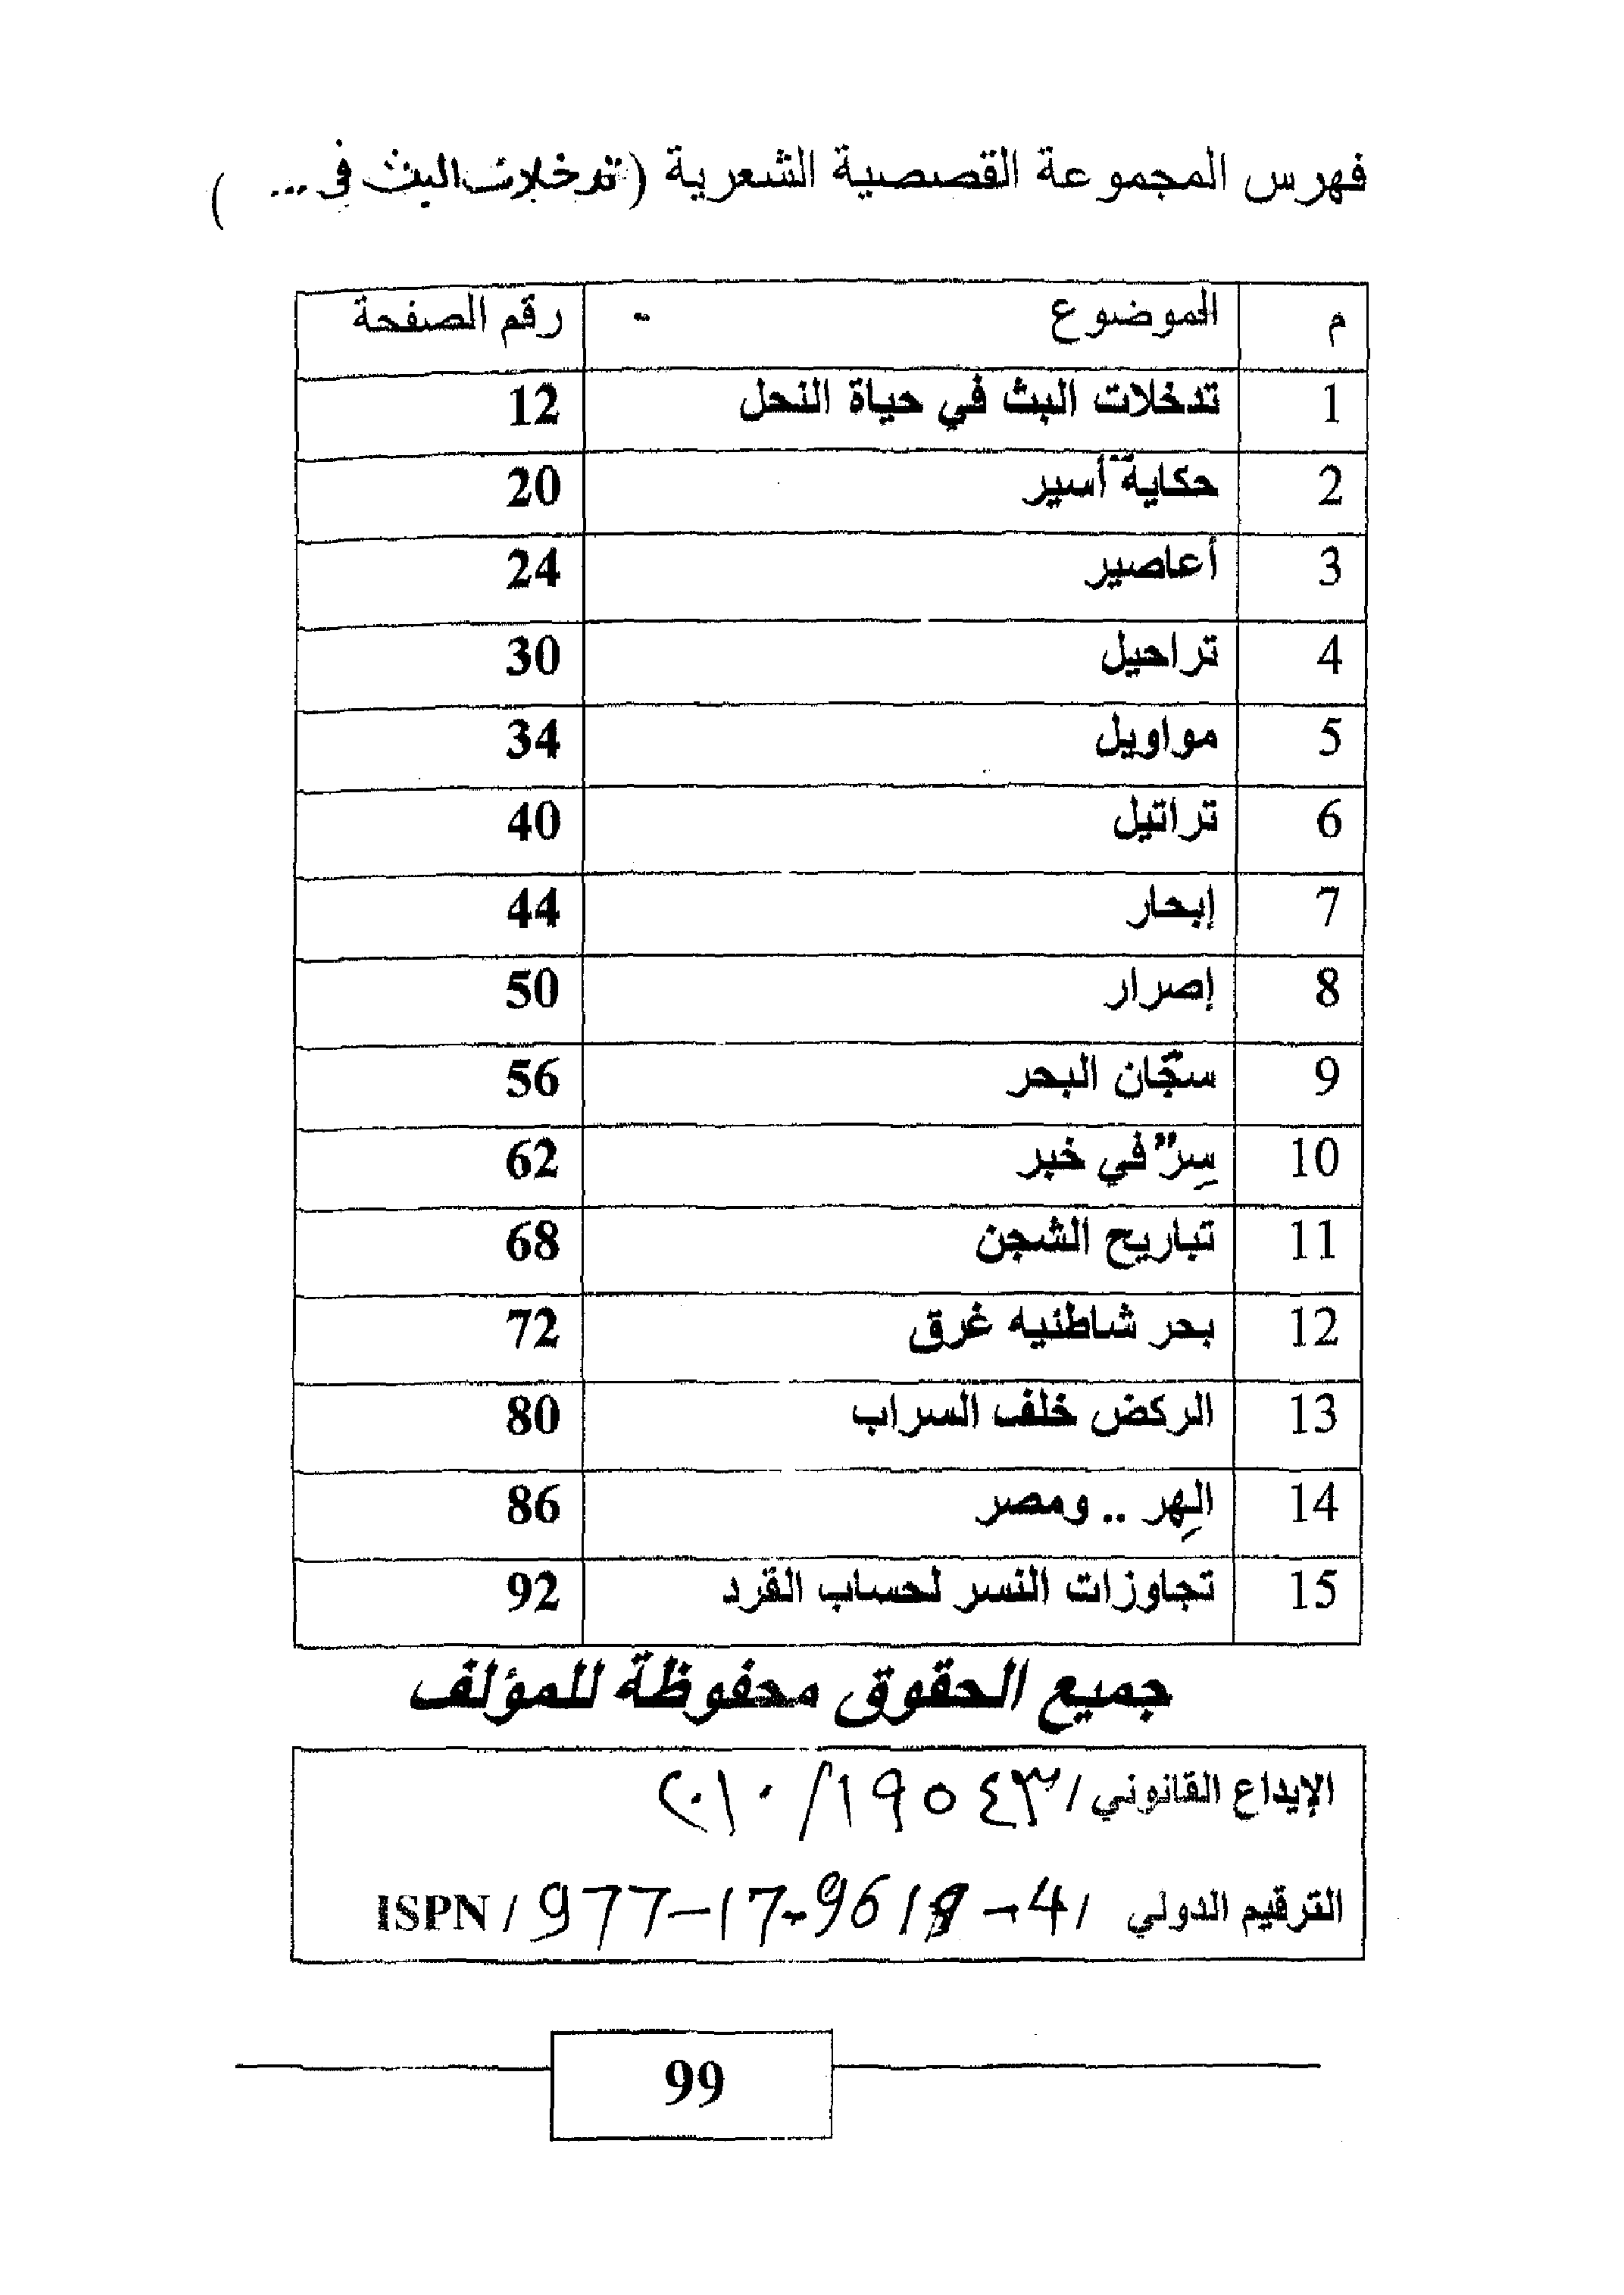 فهرس المجموعة القصصية الشعرية (تدخلات البث في ... )
م الموضوع - رقم الصفحة
1 تدخلات البث في حياة النحل 12
2 حكاية أسير 20
3 أعاصير 24
4 تراحيل 30
5 مواويل 34
6 تراتيل 40
7 إبحار 44
8 إصرار 50
9 سجّان البحر 56
10 سِرٌّ في خبر 62
11 تباريح الشجن 68
12 بحر شاطئيه غرق 72
13 الركض خلف السراب 80
14 الهِر .. ومصر 86
15 تجاوزات النسر لحساب القرد 92
جميع الحقوق محفوظة للمؤلف
الإيداع القانوني / ١٩٥٤٣ / ٢٠١٠
الترقيم الدولي / ISPN / 977-17-9619-4
99